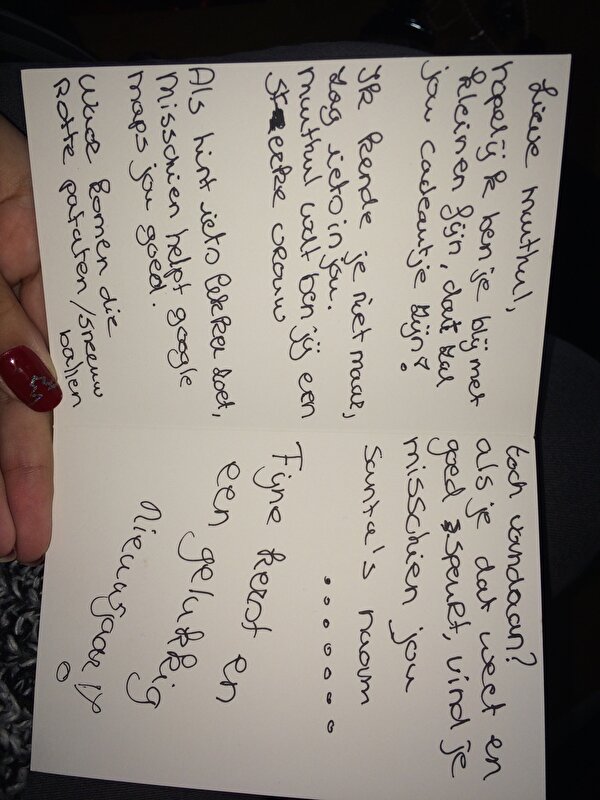 Lieve Muthul,
hopelijk ben je blij met
klein en fijn, dat zal
jou cadeautje zijn?
Ik kende je niet maar,
zag iets in jou.
Muthul wat ben jij een
sterke vrouw
Als hint iets lekker zoet,
Misschien helpt google
maps jou goed.
Waar komen die
Rotte pataten/sneeuw
ballen
toch vandaan?
als je dat weet en
goed speurt, vind je
misschien jou
santa's naam
. . . . . . . .
Fijne kerst en
een gelukkig
Nieuwjaar!